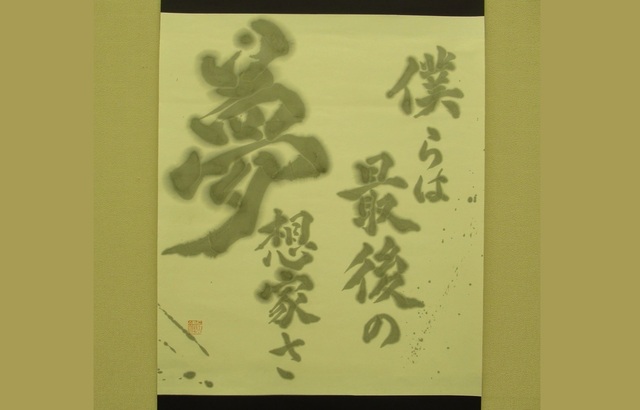 僕らは
最後の
夢
想家さ